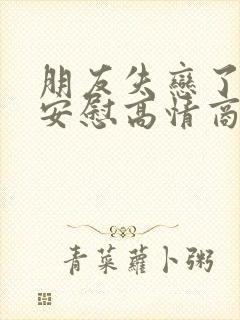 朋友失戀了
安慰高情商
青菜蘿卜粥